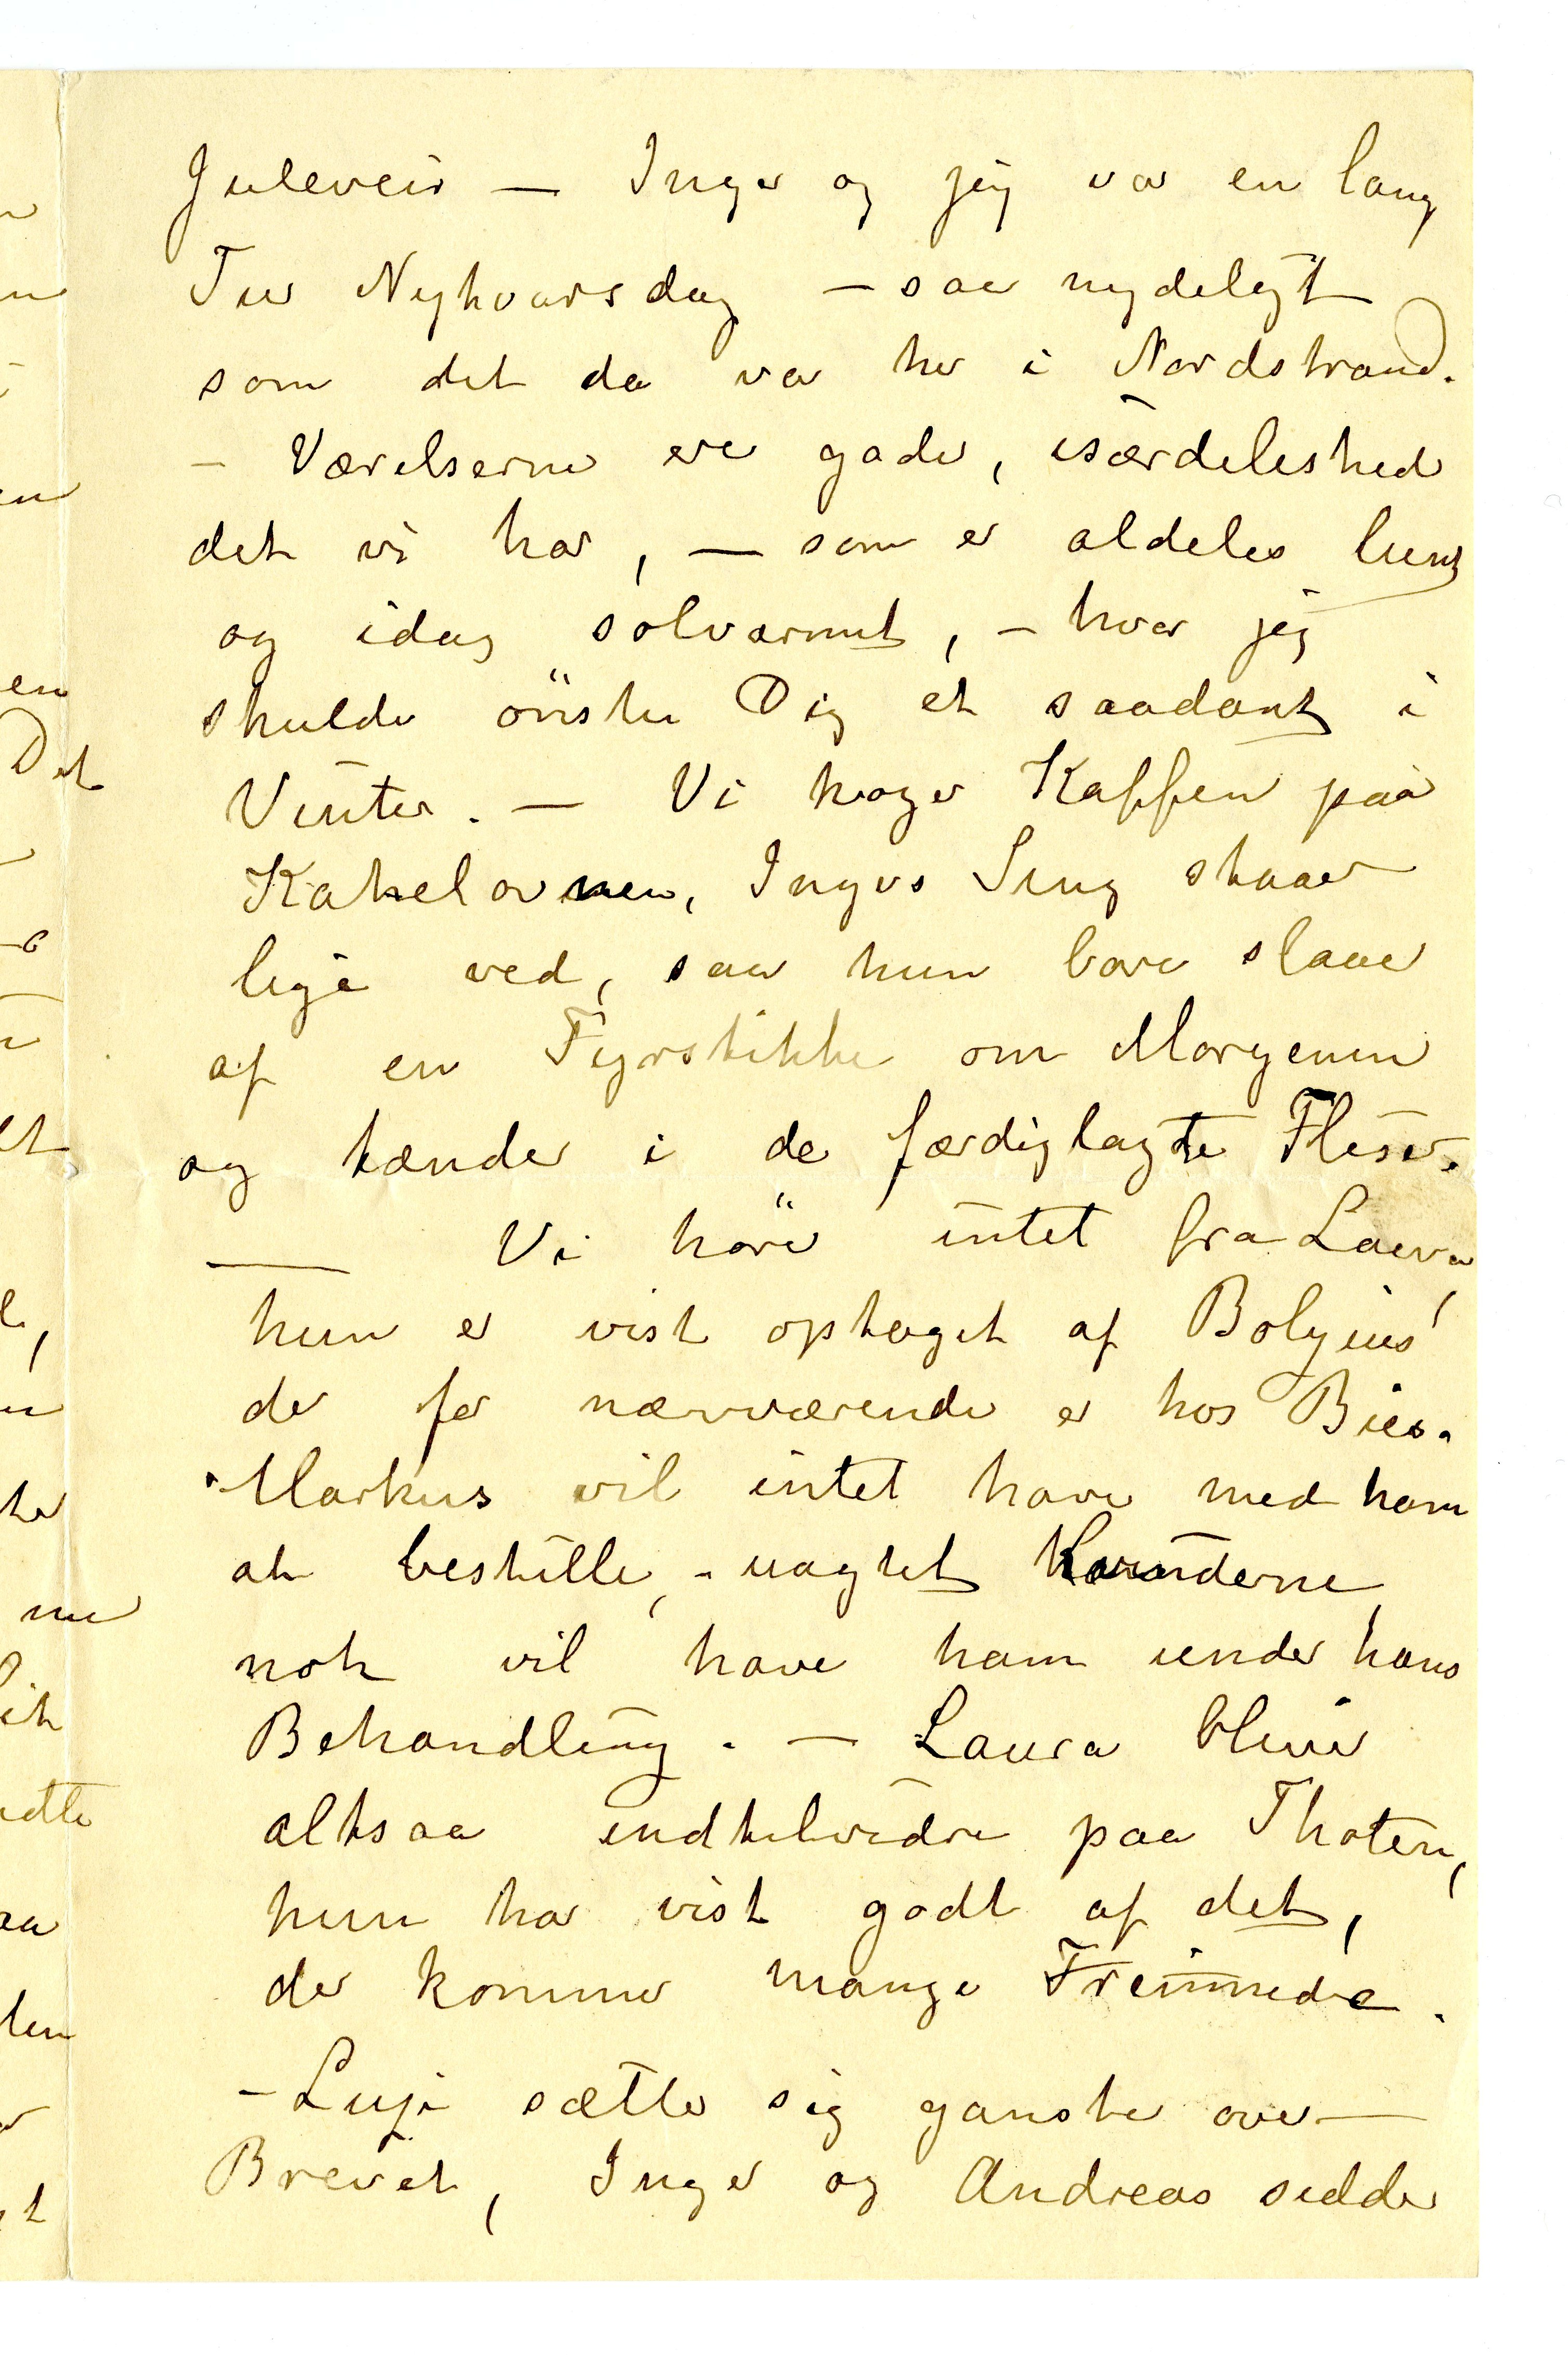 Juleveir — Inger og jeg var en lang
Tur Nyhaarsdag — saa nydeligt
som det da var her i Nordstrand.
— Værelserne ere gode, isærdeleshed
det vi har, — som er aldeles lunt
og idag solvarmt, — hvor jeg
skulde önske Dig et saadant i
Vinter. — Vi koger Kaffen paa
Kakelovnen, Ingers Seng staaer
lige ved, saa hun bare slaaer
af en Fyrstikke om Morgenen
og tænder i de færdiglagte Fliser.
— Vi hörer intet fra Laura,
hun er vist optaget af Bolgius'
der for nærværende er hos Bies.
Markus vil intet have med ham
at bestille, - uagtet Kvinderne,
nok vil have ham under hans
Behandling. — Laura bliver
altsaa indtilvidre paa Thoten,
hun har vist godt af det,
der kommer mange Fremmede.
— Lusi sætter sig ganske over
Brevet, Inger og Andreas sidder
n
en
en
Det
et
nu
dette
aa
den